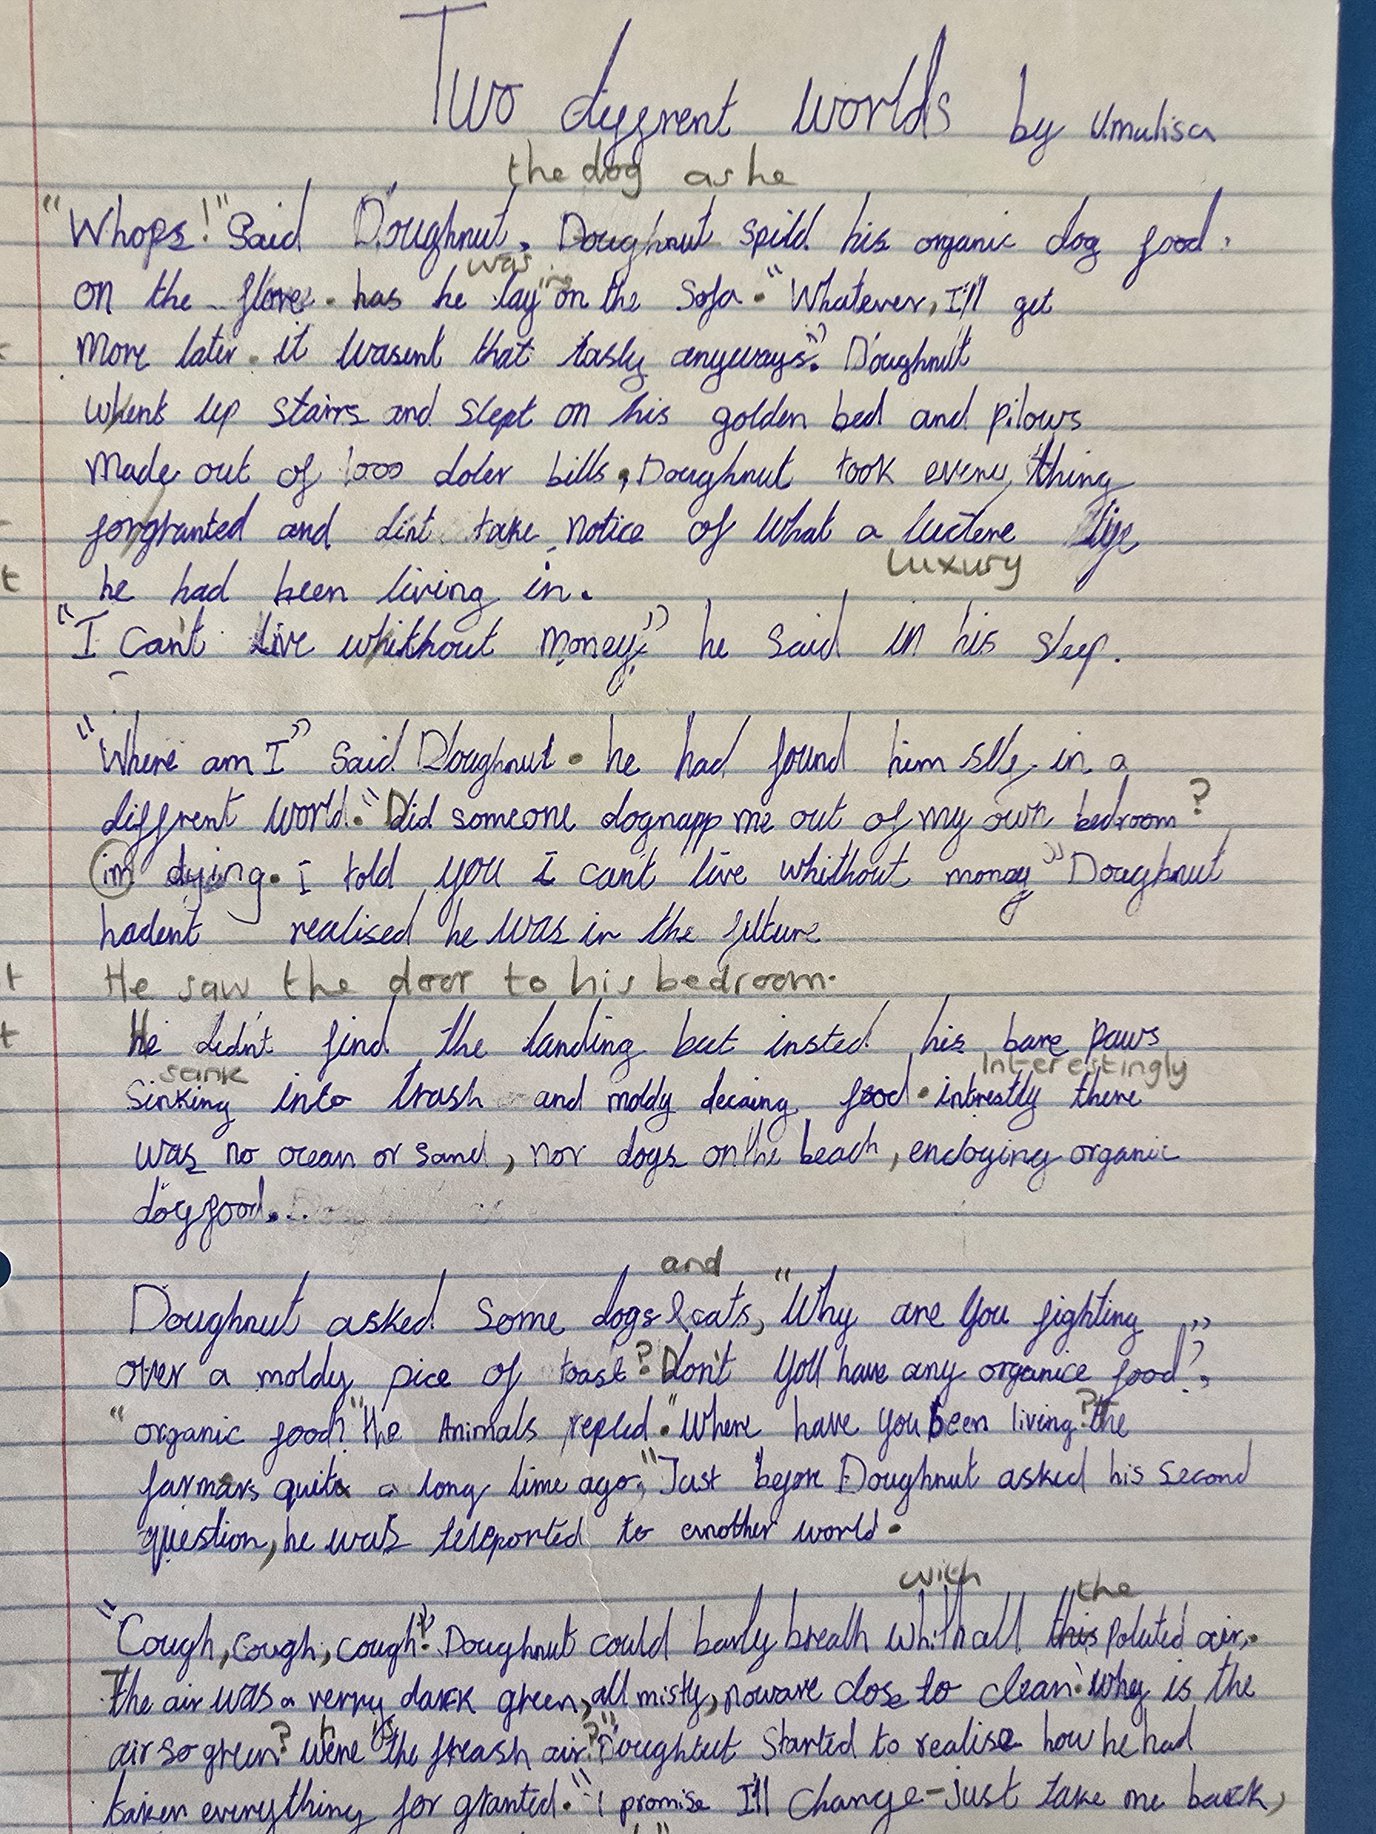 Two diffrent worlds by Umulisa
the dog as he
"Whops!" Said Doughnut. Doughnut spild his organic dog food.
was ing
on the flore. has he lay on the Sofa. "Whatever, I'll get
More later. it wasent that tasty anyways." Doughnut
Whent up stairs and slept on his golden bed and pilows
Made out of 1000 doler bills. Doughnut took every thing
forgranted and dint take notice of what a luctere life
luxury
t he had been living in.
"I Can't Live whithout Money" he Said in his sleep.
"Where am I" Said Doughnut. he had found him slef in a
diffrent world. "Did someone dognapp me out of my own bedroom?
im dying. I told you I can't live whithout money" Doughnut
hadent realised he was in the future
t He saw the door to his bedroom.
t He didn't find the landing but insted his bare paws
sank Interestingly
Sinking into trash and moldy decaing food. intrestly there
was no ocean or sand, nor dogs on the beach, endoying organic
dog food.
and
Doughnut asked Some dogs & cats, "Why are you fighting
over a moldy pice of toast? Don't you have any organice food?"
"organic food?" the Animals repled. "Where have you been living? the
farmars quite a long time ago," Just before Doughnut asked his second
question, he was teleported to another world.
with the
"Cough, cough, cough!" Doughnut could barly breath whith all this poluted air.
The air was a verry dark green, all misty, noware close to clean. "Why is the
air so green? Where is the freash air?" Doughtut Started to realise how he had
taken everything for granted. "i promise I'll change-just take me back,